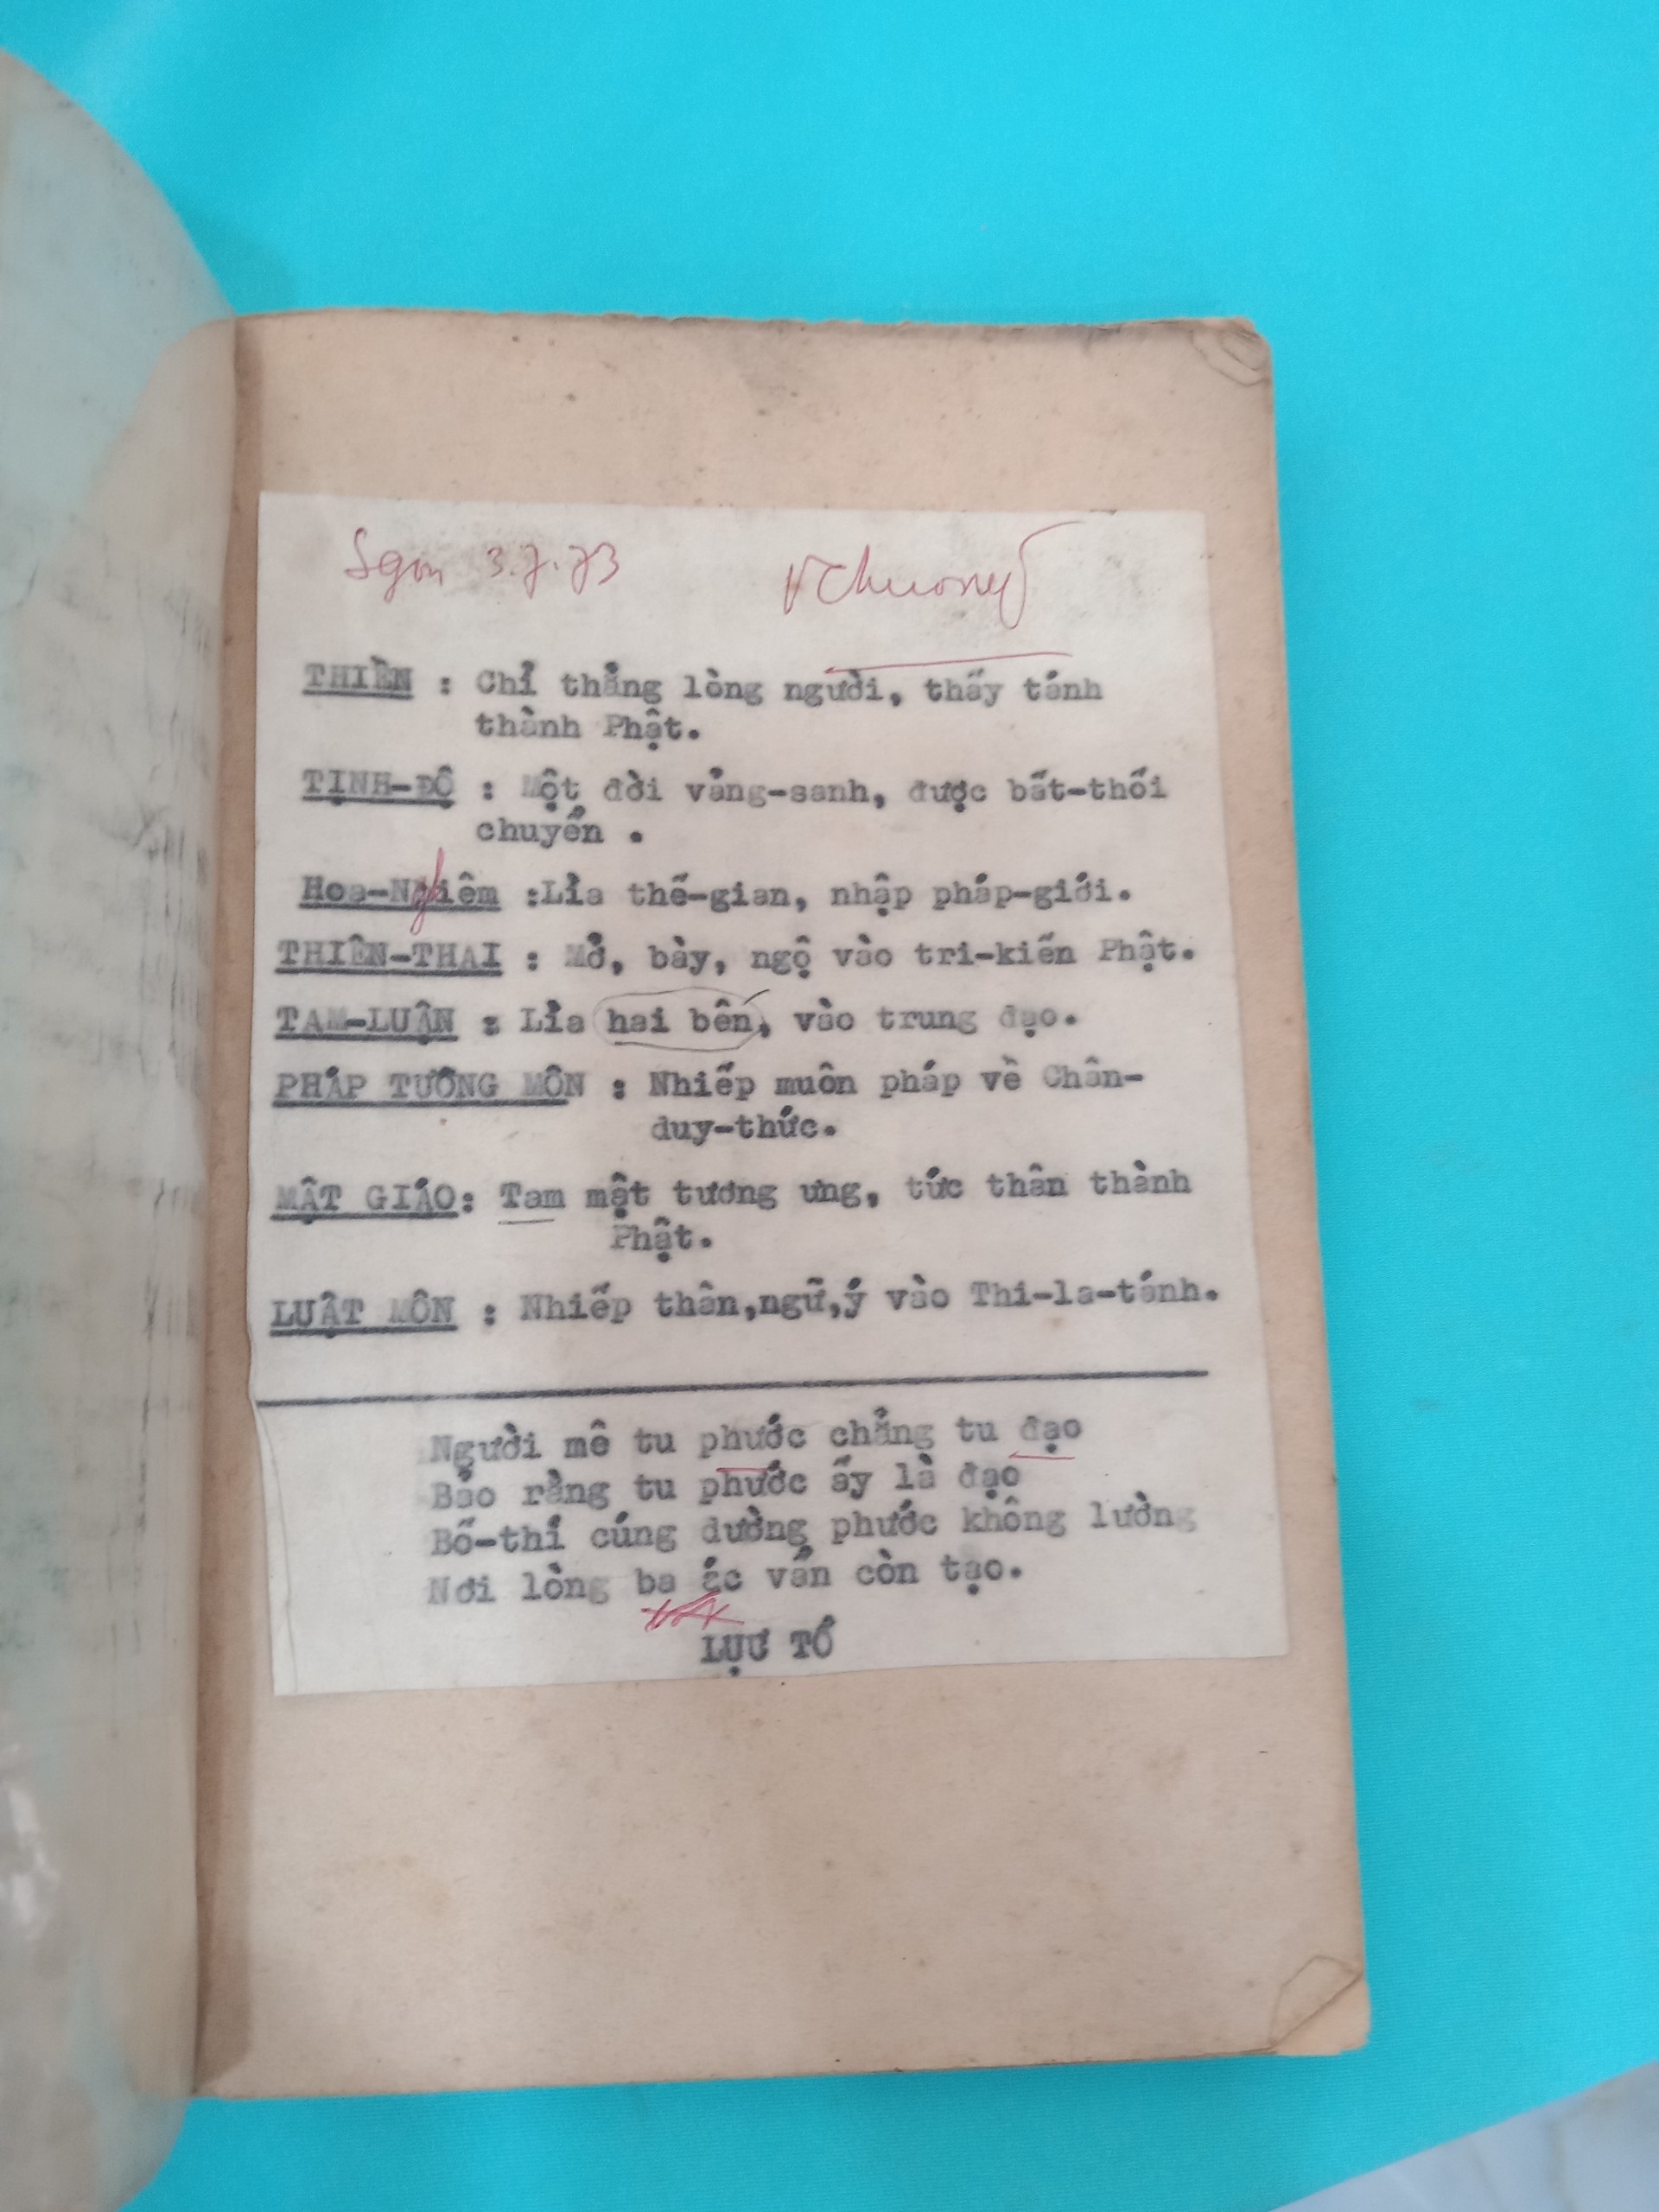 Sgon 3.7.73
THIỀN : Chỉ thẳng lòng người, thấy tánh
thành Phật.
TỊNH-ĐỘ : Một đời vảng-sanh, được bất-thối
chuyển .
Hoa-Nghiêm :Lìa thế-gian, nhập pháp-giới.
THIÊN-THAI : Mở, bày, ngộ vào tri-kiến Phật.
TAM-LUẬN : Lìa hai bến, vào trung đạo.
PHÁP TƯỚNG MÔN : Nhiếp muôn pháp về Chân-
duy-thức.
MẬT GIÁO: Tam mật tương ưng, tức thân thành
Phật.
LUẬT MÔN : Nhiếp thân,ngữ,ý vào Thi-la-tánh.
Người mê tu phước chẳng tu đạo
Bảo rằng tu phước ấy là đạo
Bố-thí cúng dường phước không lường
Nơi lòng ba ác vẫn còn tạo.
LỤC TỔ